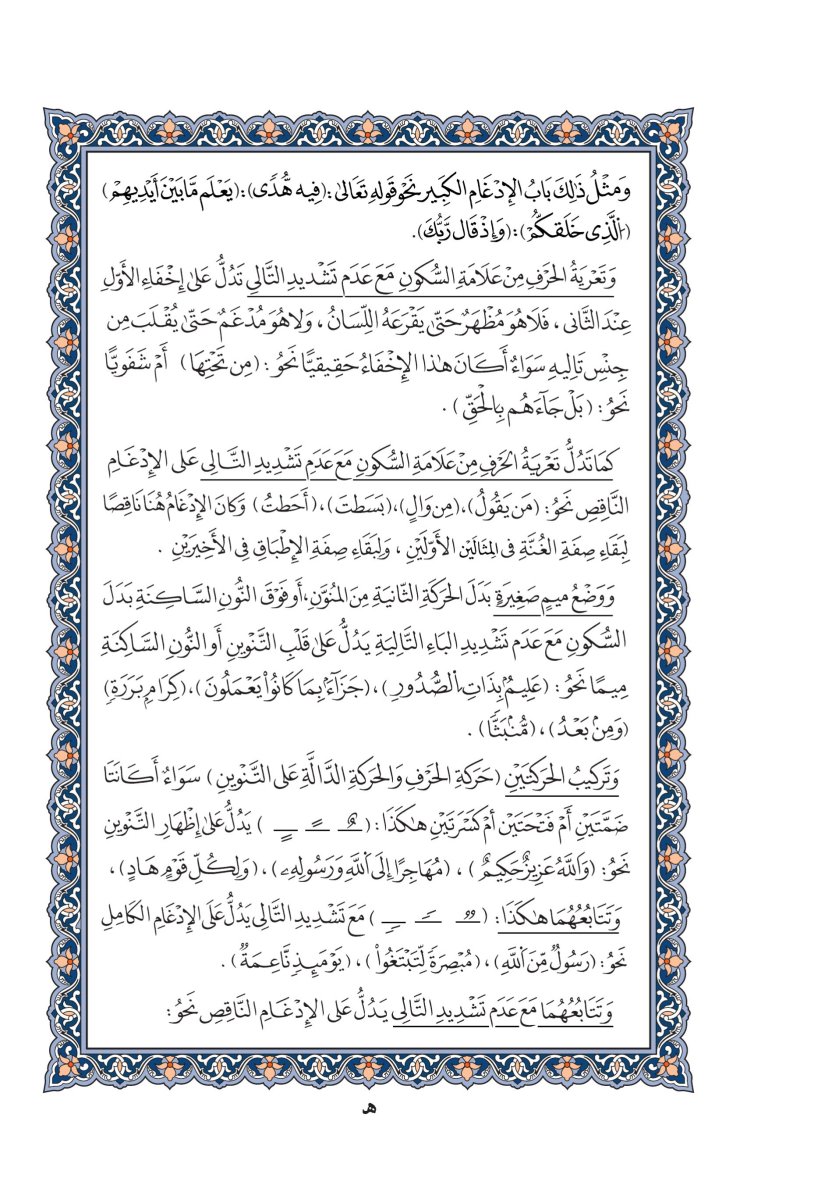 وَمِثْلُ ذَٰلِكَ بَابُ الإِدْغَامِ الكَبِيرِ نَحْو قَوْلِهِ تَعَالىٰ :(فِيه هُّدًى):(يَعْلَم مَّا بَيْنَ أَيْدِيهِمْ)
(اٰلَّذِى خَلَقكُّمْ):(وَإِذْ قَال رَّبُّكَ).
وَتَعْرِيَةُ الحَرْفِ مِنْ عَلَامَةِ السُّكُونِ مَعَ عَدَمِ تَشْدِيدِ التَّالِي تَدُلُّ عَلىٰ إِخْفَاءِ الأَوَّلِ
عِنْدَ الثَّانِى ، فَلَا هُوَ مُظْهَرٌ حَتّىٰ يَقْرَعَهُ اللِّسَانُ ، وَلَا هُوَ مُدْغَمٌ حَتّىٰ يُقْلَبَ مِن
جِنْسِ تَالِيهِ سَوَاءٌ أَكَانَ هٰذَا الإِخْفَاءُ حَقِيقِيًّا نَحْوُ : (مِن تَحْتِهَا) أَمْ شَفَوِيًّا
نَحْوُ : (بَلْ جَآءَهُم بِالْحَقِّ) .
كَمَا تَدُلُّ تَعْرِيَةُ الحَرْفِ مِنْ عَلَامَةِ السُّكُونِ مَعَ عَدَمِ تَشْدِيدِ التَّالِى عَلَى الإِدْغَامِ
النَّاقِصِ نَحْوُ: (مَن يَقُولُ)،(مِن وَالٍ)،(بَسَطتَ)،(أَحَطتُ) وَكَانَ الإِدْغَامُ هُنَا نَاقِصًا
لِبَقَاءِ صِفَةِ الغُنَّةِ فِى المِثَالَيْنِ الأَوَّلَيْنِ ، وَلِبَقَاءِ صِفَةِ الإِطْبَاقِ فِى الأَخِيرَيْنِ .
وَوَضْعُ مِيمٍ صَغِيرَةٍ بَدَلَ الحَرَكَةِ الثَّانِيَةِ مِنَ المُنَوَّنِ،أَوفَوْقَ النُّونِ السَّاكِنَةِ بَدَلَ
السُّكُونِ مَعَ عَدَمِ تَشْدِيدِ البَاءِ التَّالِيَةِ يَدُلُّ عَلىٰ قَلْبِ التَّنْوِينِ أَوِ النُّونِ السَّاكِنَةِ
مِيمًا نَحْوُ : (عَلِيمُۢ بِذَاتِ اٰلصُّدُورِ) ،(جَزَآءَۢ بِمَا كَانُواْ يَعْمَلُونَ)،(كِرَامِۭ بَرَرَةٍ)
(وَمِنۢ بَعْدُ) ،(مُّنۢبَثًّا) .
وَتَرْكِيبُ الحَرَكَتَيْنِ (حَرَكَةِ الحَرْفِ وَالحَرَكَةِ الدَّالَّةِ عَلَى التَّنْوِينِ) سَوَاءٌ أَكَانَتَا
ضَمَّتَيْنِ أَمْ فَتْحَتَيْنِ أَمْ كَسْرَتَيْنِ هٰكَذَا : (ـٌ ـً ـٍ) يَدُلُّ عَلىٰ إِظْهَارِ التَّنْوِينِ
نَحْوُ: (وَاللَّهُ عَزِيزٌ حَكِيمٌ) ، (مُهَاجِرًا إِلَى اَللَّهِ وَرَسُولِهِۦ)،(وَلِكُلِّ قَوْمٍ هَادٍ) ،
وَتَتَابُعُهُمَا هٰكَذَا : (ـࣱ ـࣰ ـࣲ) مَعَ تَشْدِيدِ التَّالِى يَدُلُّ عَلَى الإِدْغَامِ الكَامِلِ
نَحْوُ : (رَسُولࣱ مِّنَ اَللَّهِ) ، (مُبْصِرَةࣰ لِّتَبْتَغُواْ) ، (يَوْمَئِذࣲ نَّاعِمَةࣱ) .
وَتَتَابُعُهُمَا مَعَ عَدَمِ تَشْدِيدِ التَّالِى يَدُلُّ عَلَى الإِدْغَامِ النَّاقِصِ نَحْوُ:
هـ